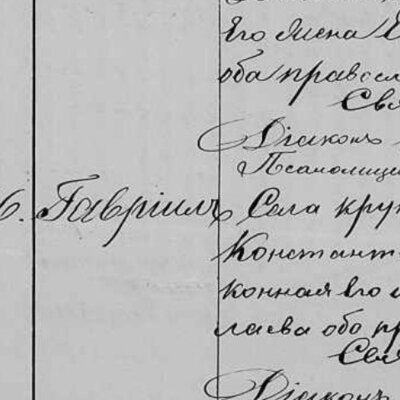 Его жена
оба правосл
Свя
Діаконъ
Псаломщи
6. Гавріилъ Села кру
Констант
конная его
лаева оба пр
Свя
Діаконъ